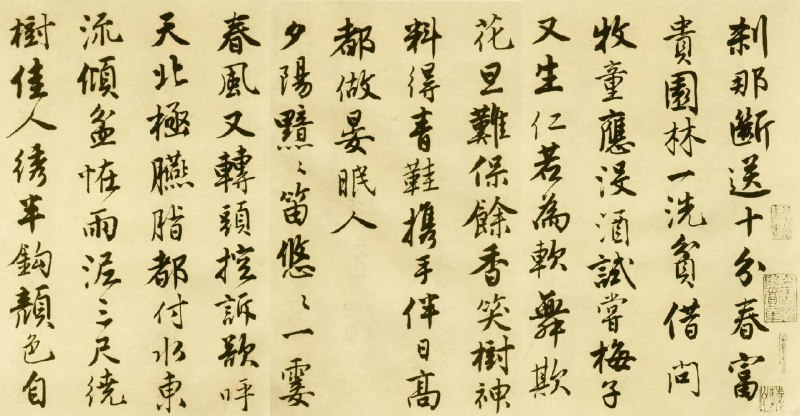 刹那斷送十分春富
貴園林一洗貧借問
牧童應沒酒試嘗梅子
又生仁若為軟舞欺
花旦難保餘香笑樹神
料得青鞋攜手伴日高
都做晏眠人
夕陽黯〻笛悠〻一霎
春風又轉頭控訴欲呼
天北極臙脂都付水東
流傾盆怪雨泥三尺繞
樹佳人綉半鈎顏色自